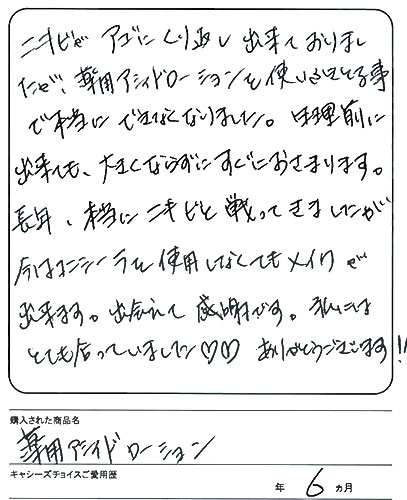 ニキビが アゴに くり返し 出来ておりまし
たが、薬用アシィドローションを使いはじめる事
で本当に できなくなりました。生理前に
出来ても、大きくならずにすぐにおさまります。
長年、本当にニキビと戦ってきましたが
今はコンシーラを使用しなくてもメイクが
出来ます。出会えて感謝です。私には
とても合っていました♡♡ ありがとうございます!!
購入された商品名
薬用アシィドローション
キャシーズチョイスご愛用歴
年 6 ヵ月